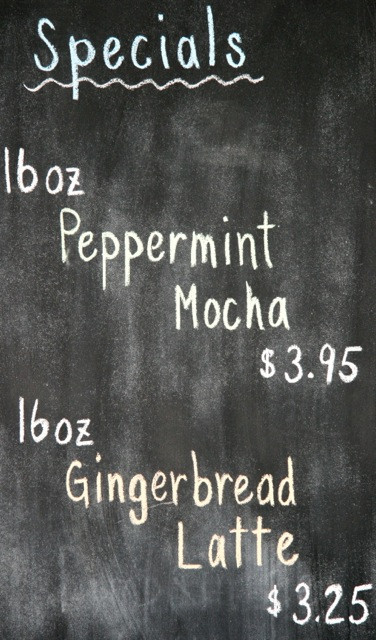 Specials
16oz
Peppermint
Mocha
$3.95
16oz
Gingerbread
Latte
$3.25